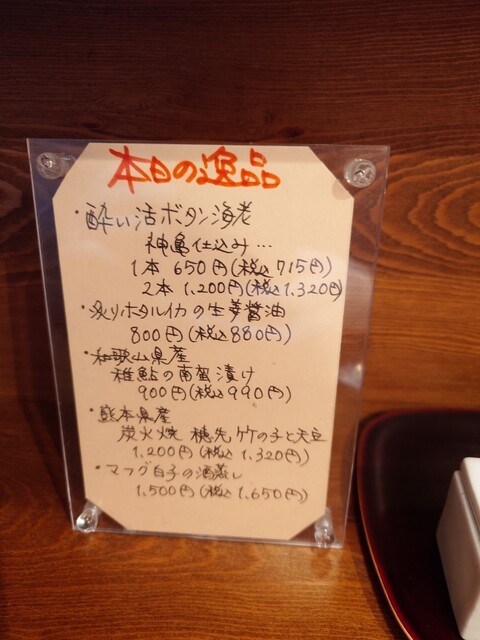 本日の逸品
・酔い活ボタン海老
神島仕込み…
1本 650円(税込715円)
2本 1,200円(税込1,320円)
・炙りホタルイカの生姜醤油
800円(税込880円)
・和歌山県産
稚鮎の南蛮漬け
900円(税込990円)
・熊本県産
炭火焼 穂先竹の子と天豆
1,200円(税込1,320円)
・マフグ白子の酒蒸し
1,500円(税込1,650円)